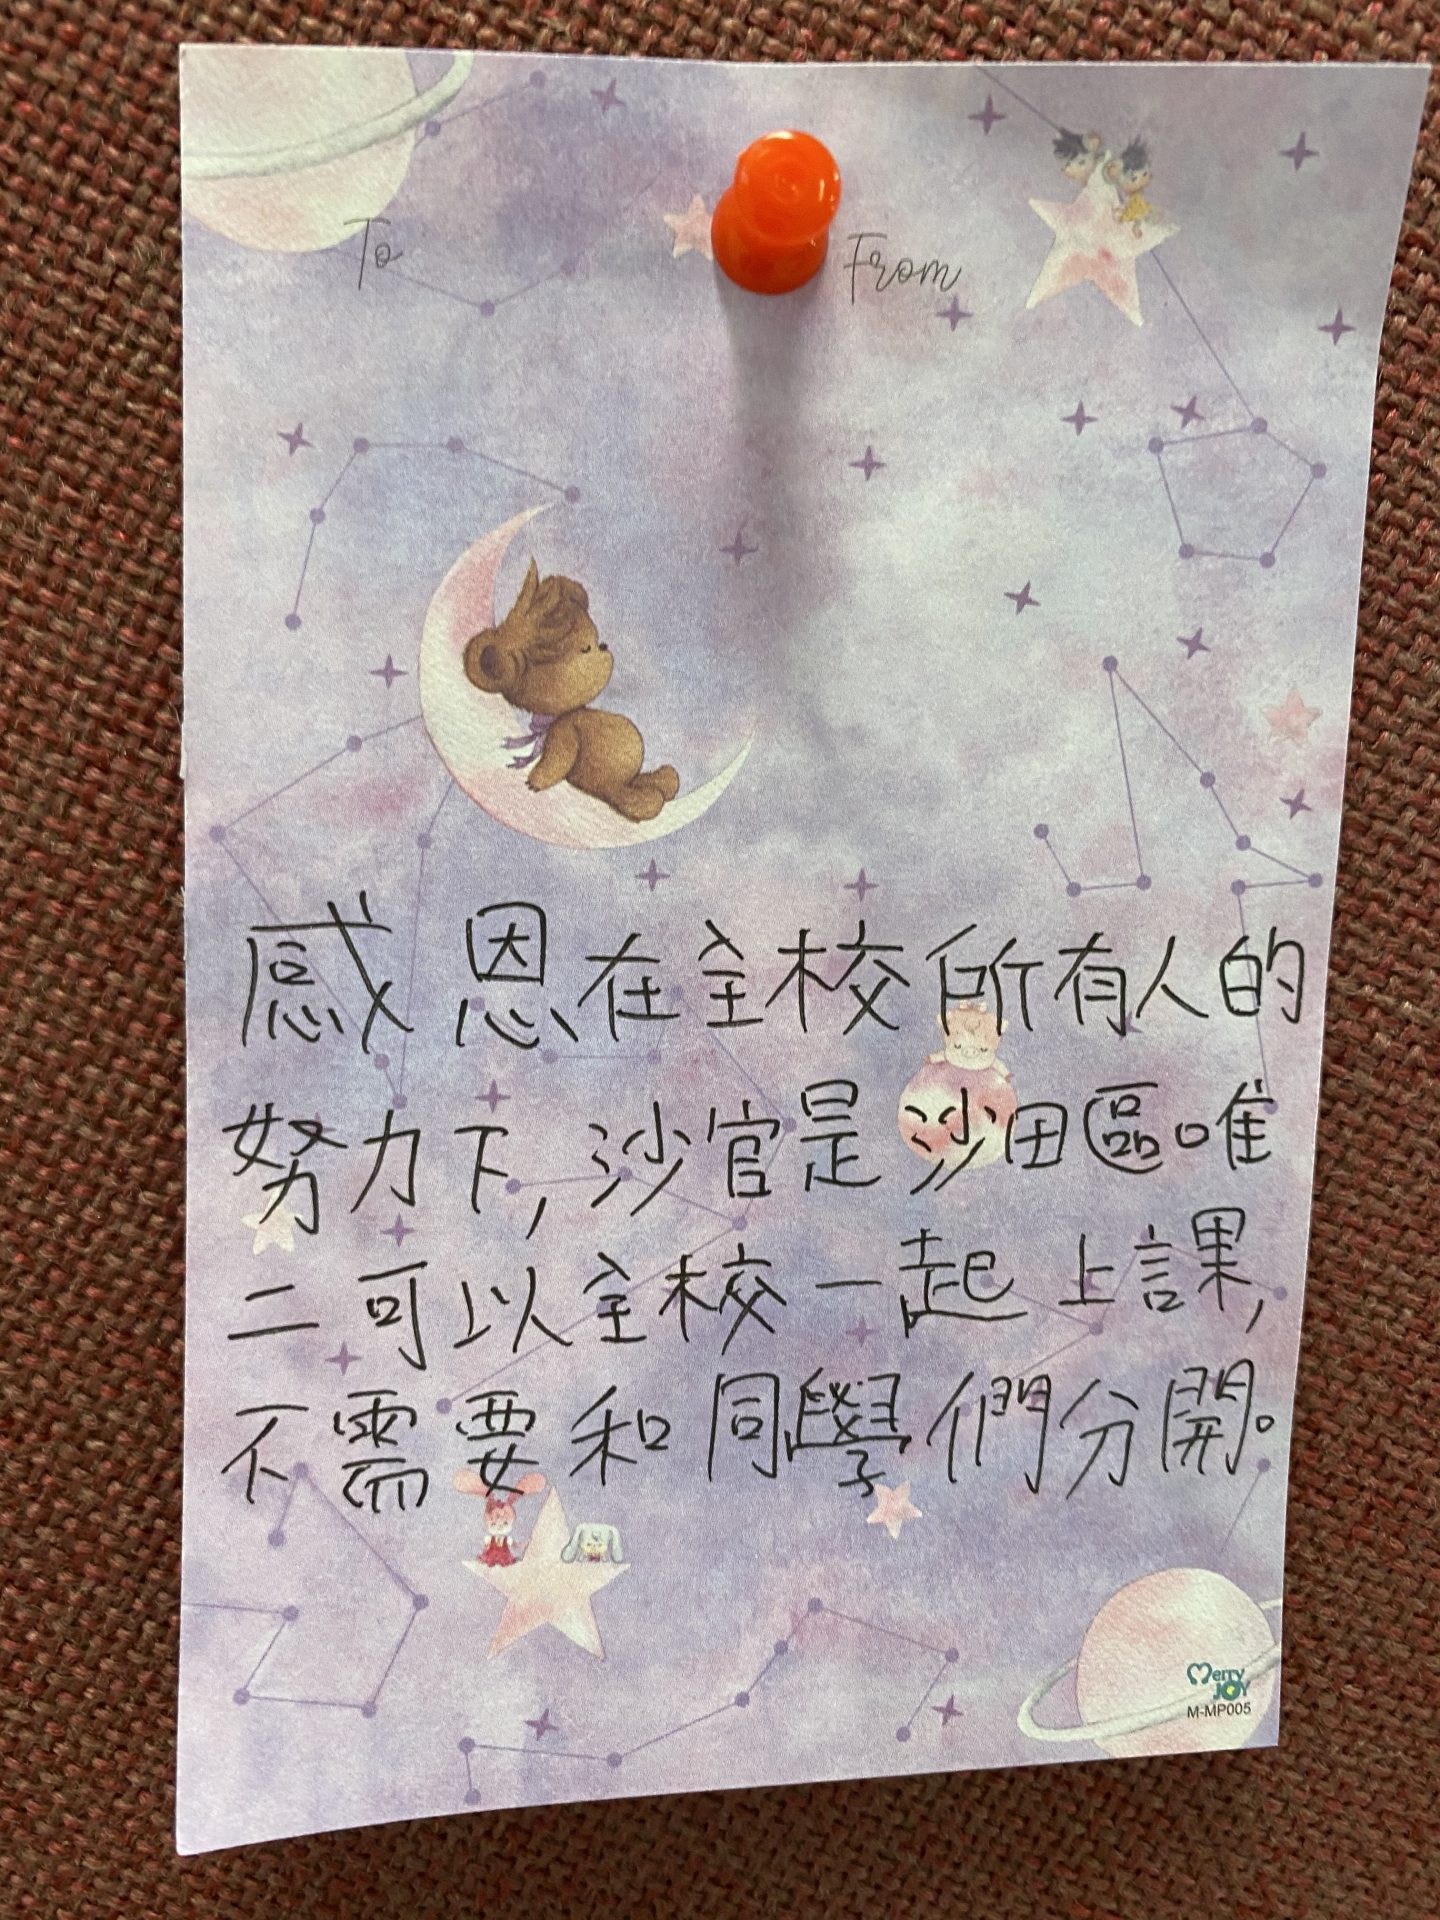 To From
感恩在全校所有人的
努力下,沙官是沙田區唯
二可以全校一起上課,
不需要和同學們分開。
Merry JOY
M-MP005